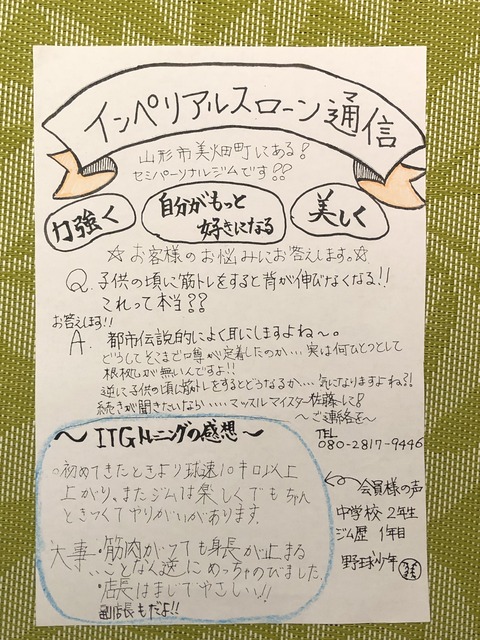 インペリアルスローン通信
山形市美畑町にある!
セミパーソナルジムです??
力強く
自分がもっと
好きになる
美しく
☆お客様のお悩みにお答えします。☆
Q.子供の頃に筋トレをすると背が伸びなくなる!!
これって本当??
お答えします!!
A.都市伝説的によく耳にしますよね〜。
どうしてそこまで噂が定着したのか…実は何ひとつとして
根拠が無いんですよ!!
逆に子供の頃に筋トレをするとどうなるか…気になりますよね?!
続きが聞きたいなら……マッスルマイスター佐藤に!
〜ご連絡を〜
TEL
080-2817-9446
〜ITGトレーニングの感想〜
○初めてきたときより球速10キロ以上
上がり、またジムは楽しくでもちゃん
ときつくてやりがいがあります。
大事・筋肉がついても身長が止まる
…ことなく逆にめっちゃのびました。
・店長はまじでやさしい!!
副店長もだよ!!
会員様の声
中学校2年生
ジム歴1年目
野球少年